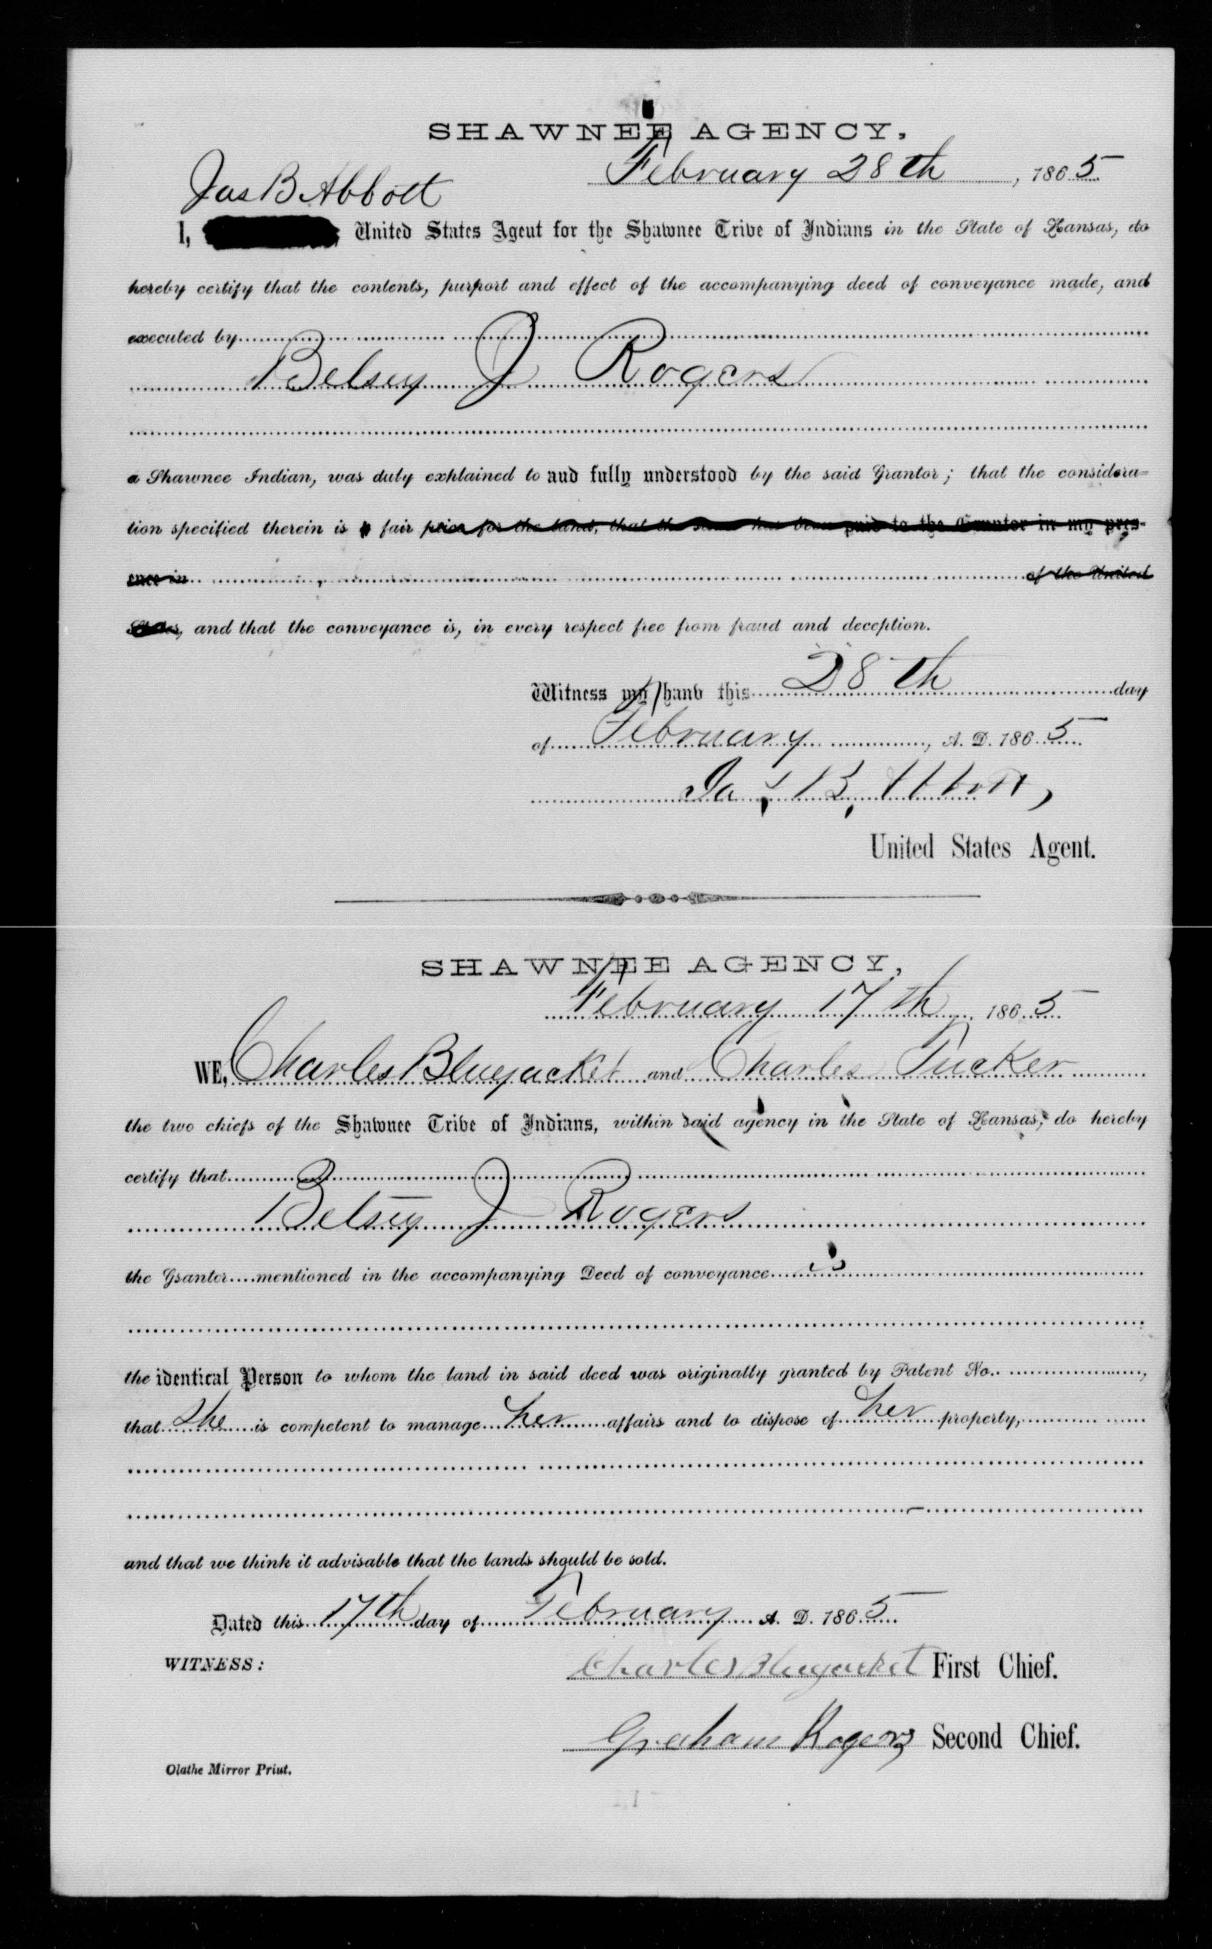 SHAWNEE AGENCY,
February 28th, 1865
Jas B Abbott
I, United States Agent for the Shawnee Tribe of Indians in the State of Kansas, do
hereby certify that the contents, purport and effect of the accompanying deed of conveyance made, and
executed by
Betsey J Rogers
a Shawnee Indian, was duly explained to and fully understood by the said Grantor; that the considera-
tion specified therein is a fair price for the land, that the same has been paid to the Grantor in my pres-
ence in of the United
States, and that the conveyance is, in every respect free from fraud and deception.
Witness my hand this 28th day
of February, A. D. 1865
Jas B. Abbott,
United States Agent.
SHAWNEE AGENCY,
February 17th, 1865
WE, Charles Bluejacket and Charles Tucker
the two chiefs of the Shawnee Tribe of Indians, within said agency in the State of Kansas, do hereby
certify that
Betsey J Rogers
the Grantor mentioned in the accompanying Deed of conveyance is
the identical Person to whom the land in said deed was originally granted by Patent No. ,
that she is competent to manage her affairs and to dispose of her property,
and that we think it advisable that the lands should be sold.
Dated this 17th day of February A. D. 1865
WITNESS:
Charles Bluejacket First Chief.
Graham Rogers Second Chief.
Olathe Mirror Print.